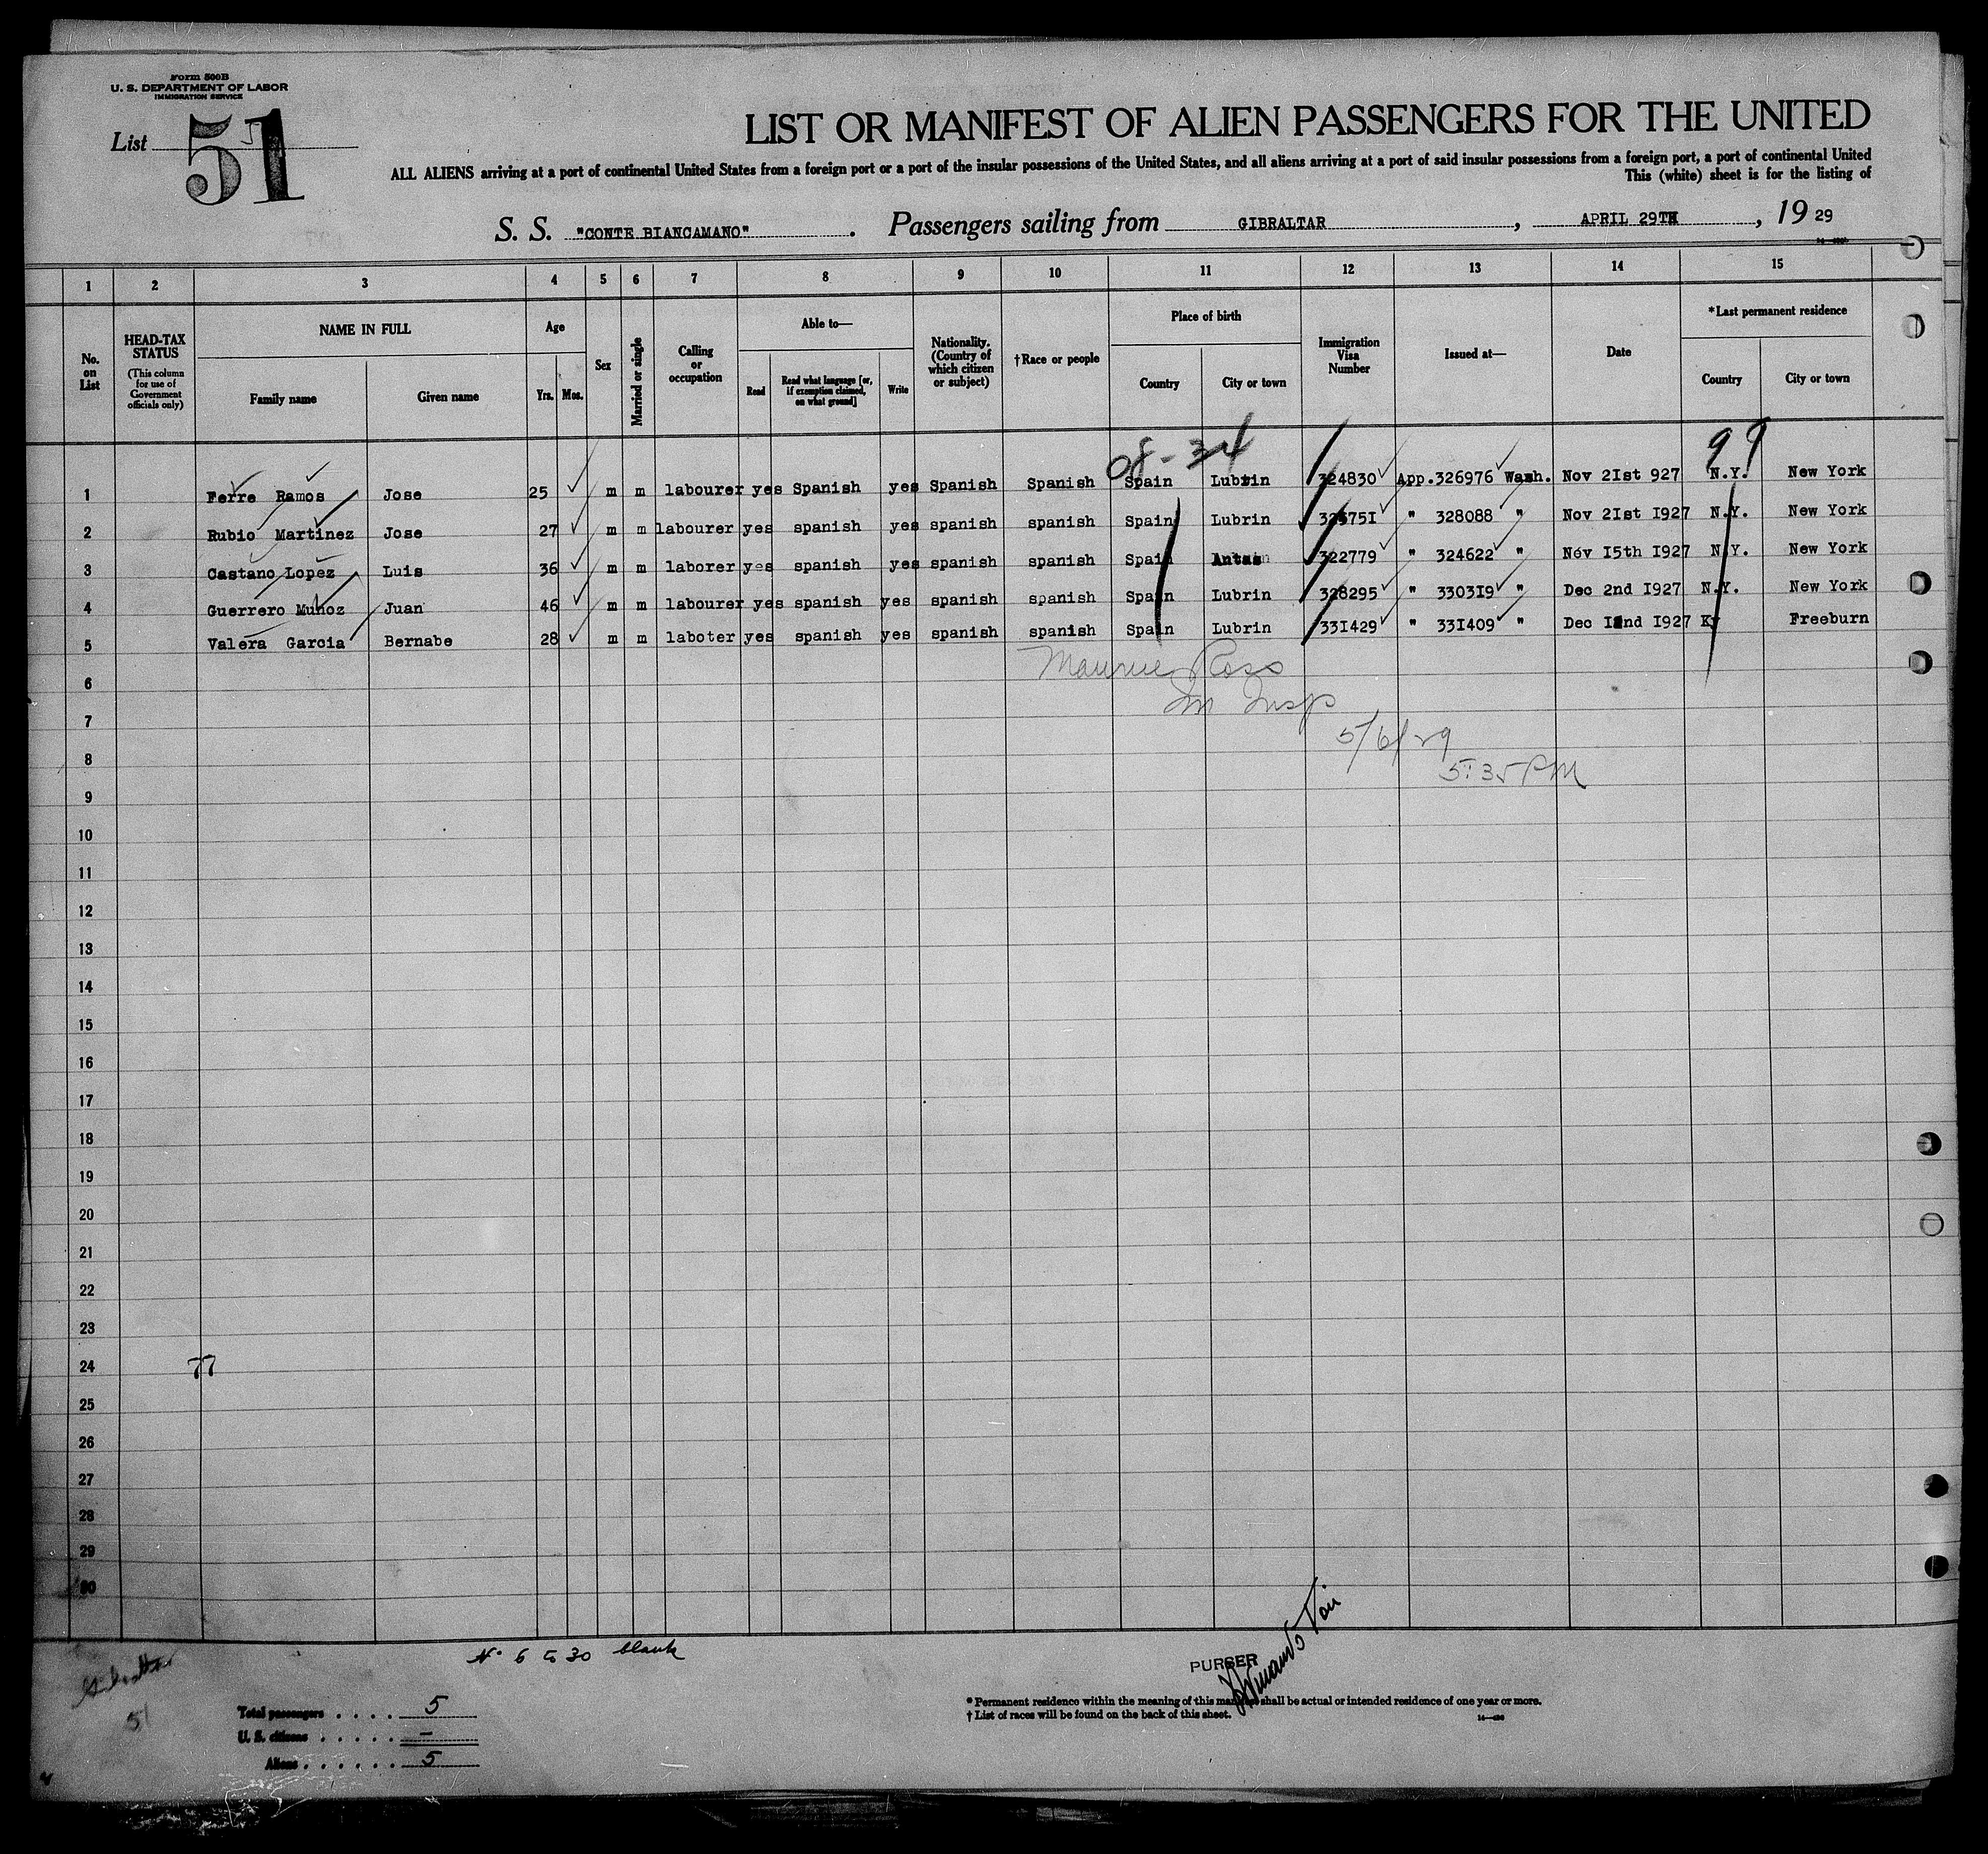 Form 500B
U. S. DEPARTMENT OF LABOR
IMMIGRATION SERVICE
List 51
LIST OR MANIFEST OF ALIEN PASSENGERS FOR THE UNITED
ALL ALIENS arriving at a port of continental United States from a foreign port or a port of the insular possessions of the United States, and all aliens arriving at a port of said insular possessions from a foreign port, a port of continental United
This (white) sheet is for the listing of
S. S. "CONTE BIANCAMANO". Passengers sailing from GIBRALTAR, APRIL 29TH, 19 29
1 2 3 4 5 6 7 8 9 10 11 12 13 14 15
No. on List
HEAD-TAX STATUS (This column for use of Government officials only)
NAME IN FULL
Family name Given name
Age
Yrs. Mos.
Sex
Married or single
Calling or occupation
Able to—
Read
Read what language [or, if exemption claimed, on what ground]
Write
Nationality. (Country of which citizen or subject)
†Race or people
Place of birth
Country City or town
Immigration Visa Number
Issued at—
Date
*Last permanent residence
Country City or town
08-34 99
1 Ferre Ramos Jose 25 m m labourer yes Spanish yes Spanish Spanish Spain Lubrin 324830 App.326976 Wash. Nov 2Ist 927 N.Y. New York
2 Rubio Martinez Jose 27 m m labourer yes spanish yes spanish spanish Spain Lubrin " 328088 " Nov 2Ist I927 N.Y. New York
3 Castano Lopez Luis 36 m m laborer yes spanish yes spanish spanish Spain Antas 322779 " 324622 " Nov I5th I927 N.Y. New York
4 Guerrero Muñoz Juan 46 m m labourer yes spanish yes spanish spanish Spain Lubrin 328295 " 3303I9 " Dec 2nd I927 N.Y. New York
5 Valera Garcia Bernabe 28 m m laboter yes spanish yes spanish spanish Spain Lubrin 33I429 " 33I409 " Dec I2nd I927 Ky Freeburn
6
Ross
Im Insp
7
5/6/29
8
5:35 PM
9
10
11
12
13
14
15
16
17
18
19
20
21
22
23
24 77
25
26
27
28
29
30
Nº 6 to 30 blank
PURSER
51
Total passengers . . . . 5
U. S. citizens . . . . . —
Aliens . . . . . . 5
* Permanent residence within the meaning of this manifest shall be actual or intended residence of one year or more.
† List of races will be found on the back of this sheet.